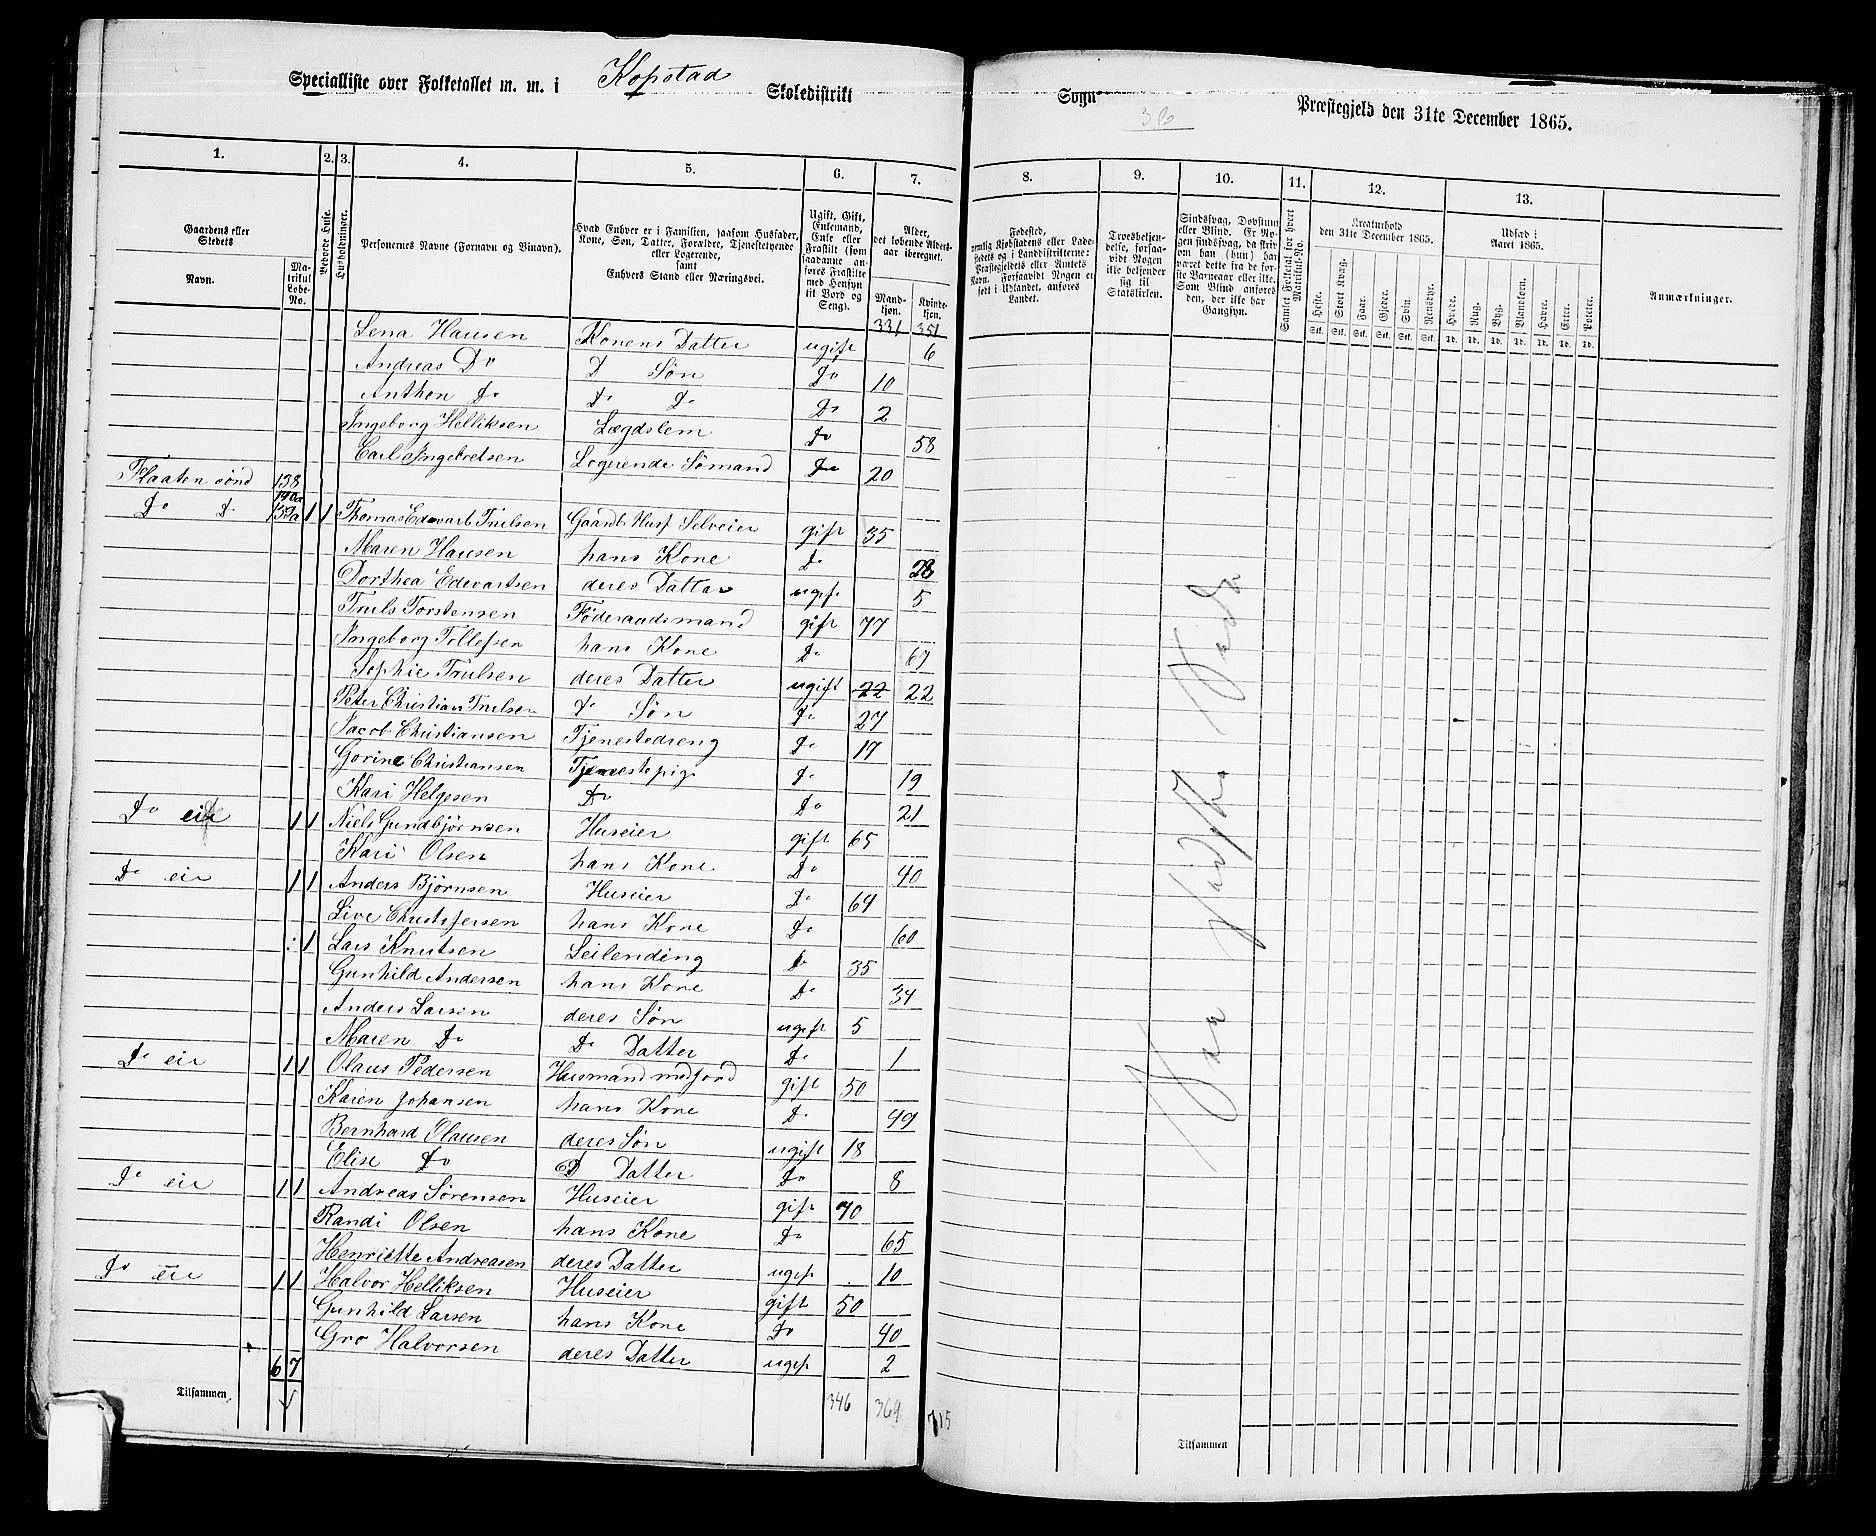 Specialliste over Folketallet m. m. i Kopstad Skoledistrikt Sogn 36 Præstegjeld den 31te December 1865.
1. 2. 3. 4. 5. 6. 7. 8. 9. 10. 11. 12. 13.
Gaardens eller Stedets
Navn.
Matrikul Løbe-No.
Beboede Huse.
Husholdninger.
Personernes Navne (Fornavn og Vinavn).
Hvad Enhver er i Familien, saasom Husfader, Kone, Søn, Datter, Forældre, Tjenestetyende eller Logerende, samt Enhvers Stand eller Næringsvei.
Ugift, Gift, Enkemand, Enke eller Fraskilt (som saadanne anføres Fraskilte med Hensyn til Bord og Seng).
Alder, det løbende Aldersaar iberegnet.
Mandkjøn. Kvindekjøn.
Fødested,
nemlig Kjøbstadens eller Ladestedets og i Landdistrikterne: Præstegjeldets eller Amtets Navn. Forsaavidt Nogen er født i Udlandet, anføres Landet.
Troesbekjendelse, forsaavidt Nogen ikke bekjender sig til Statskirken.
Sindssvag, Døvstum eller Blind. Er Nogen sindssvag, da skriv om han (hun) har været dette fra de første Barneaar eller ikke. Som Blind anføres den, der ikke har Gangsyn.
Samlet Folketal for hvert Matrikul-No.
Kreaturhold den 31te December 1865.
Heste. Stort Kvæg. Faar. Gjeder. Svin. Rensdyr.
Udsæd i Aaret 1865.
Hvede. Rug. Byg. Blandkorn. Havre. Erter. Poteter.
Stk. Stk. Stk. Stk. Stk. Stk. Td. Td. Td. Td. Td. Td. Td.
Anmærkninger.
331 351
Lena Hansen Konens Datter ugift 6
Andreas Do D Søn Do 10
Anthon Do Do Do Do 2
Ingeborg Helliksen Lægdslem Do 58
Carl Ingebretsen Logerende Sømand Do 20
Flaaten sønd 158
Do Do 159a 1 1 Thomas Edevart Trulsen Gaardb. Husf Selveier gift 35
Maren Hansen hans Kone Do 28
Dorthea Edevartsen deres Datter ugift 5
Truls Torstensen Føderaadsmand gift 77
Ingeborg Tollefsen hans Kone Do 67
Sophie Trulsen deres Datter ugift 22 22
Peter Christian Trulsen Do Søn Do 27
Jacob Christiansen Tjenestedreng Do 17
Gorine Christiansen Tjenestepige Do 19
Kari Helgesen Do Do 21
Do eie 1 1 Niels Gundbjørnsen Huseier gift 65
Kari Olsen hans Kone Do 40
Do eie 1 1 Anders Bjørnsen Huseier Do 64
Live Christofersen hans Kone Do 60
1 Lars Knutsen Leilending Do 35
Gunhild Andersen hans Kone Do 34
Anders Larsen deres Søn ugift 5
Maren Do Do Datter Do 1
Do eie 1 1 Olaus Pedersen Husmand med jord gift 50
Karen Johansen hans Kone Do 49
Bernhard Olausen deres Søn ugift 18
Elise Do D Datter Do 8
Do eie 1 1 Andreas Sørensen Huseier gift 70
Randi Olsen hans Kone Do 65
Henriette Andreasen deres Datter ugift 10
Do eie 1 1 Halvor Helliksen Huseier gift 50
Gunhild Larsen hans Kone Do 40
Gro Halvorsen deres Datter ugift 2
6 7
Tilsammen 346 369 715
Tilsammen